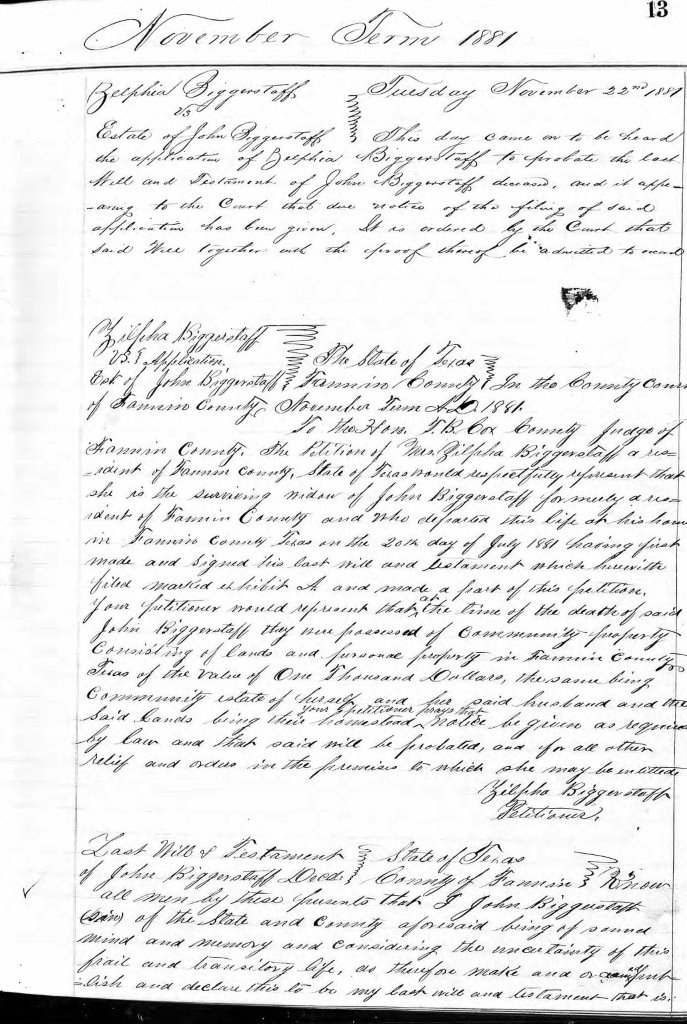 13
November Term 1881
Zelphia Biggerstaff Tuesday November 22nd 1881
VS
Estate of John Biggerstaff This day came on to be heard
the application of Zelphia Biggerstaff to probate the last
Will and Testament of John Biggerstaff deceased, and it appe-
-aring to the Court that due notice of the filing of said
application has been given. It is ordered by the Court that
said Will together with the proof thereof be admitted to record
Zilpha Biggerstaff
VS. } Application. The State of Texas
Est of John Biggerstaff Fannin County In the County Court
of Fannin County November Term A.D. 1881.
To the Hon. T.B. Cox County Judge of
Fannin County. The Petition of Mrs. Zilpha Biggerstaff a res-
-ident of Fannin County, State of Texas would respectfully represent that
she is the surviving widow of John Biggerstaff formerly a res-
ident of Fannin County and who departed this life at his home
in Fannin County Texas on the 20th day of July 1881 having first
made and signed his last will and testament which herewith
filed marked exhibit A and made a part of this petition.
Your petitioner would represent that at the time of the death of said
John Biggerstaff they were possessed of community property
Consisting of lands and personal property in Fannin County
Texas of the value of One Thousand Dollars, the same being
Community estate of herself and her said husband and the
said lands being their homestead, your petitioner prays that notice be given as required
by law and that said will be probated, and for all other
relief and orders in the premises to which she may be entitled
Zilpha Biggerstaff
Petitioner.
Last Will & Testament State of Texas
of John Biggerstaff Decd County of Fannin Know
all men by these presents that I John Biggerstaff
of the State and County aforesaid being of sound
mind and memory and considering the uncertainty of this
frail and transitory life, do therefore make and or pub-
-lish and declare this to be my last will and testament that is: